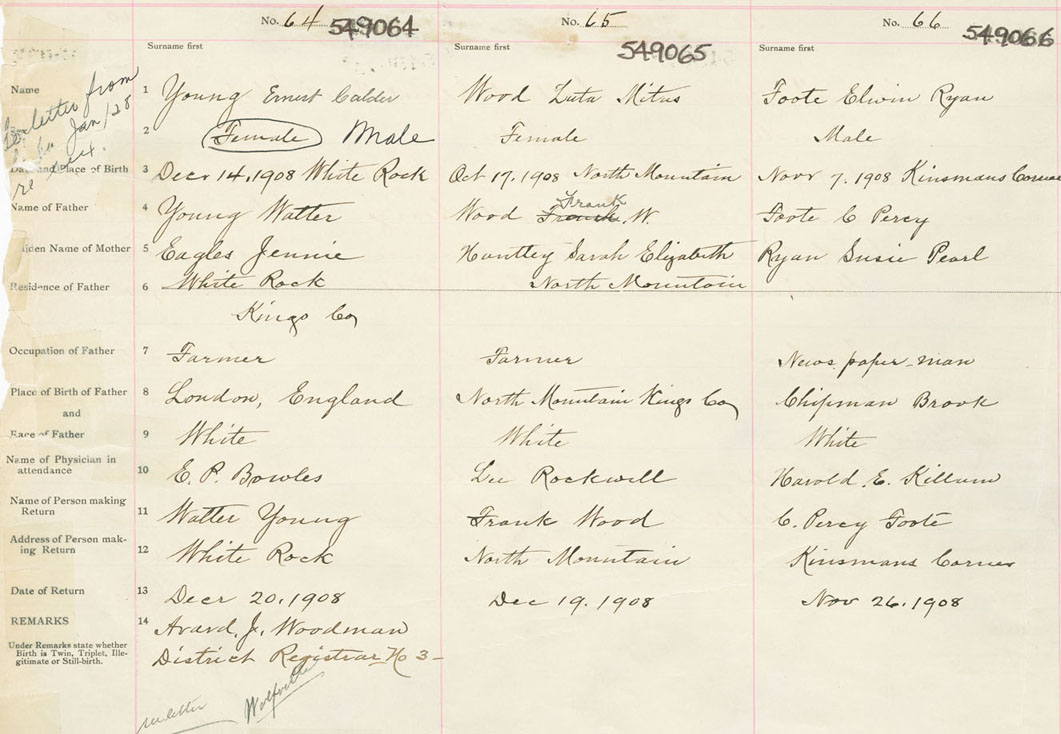 No. 64 549064 No. 65 549065 No. 66 549066
Surname first Surname first Surname first
letter from
Jan/28
re sex.
Name 1 Young Ernest Calder Wood Luta Mitus Foote Elwin Ryan
2 Female Male Female Male
Date and Place of Birth 3 Decr 14, 1908 White Rock Oct 17, 1908 North Mountain Novr 7, 1908 Kinsmans Corner
Name of Father 4 Young Walter Wood Frank Frank W. Foote C Percy
Maiden Name of Mother 5 Eagles Jennie Huntley Sarah Elizabeth Ryan Susie Pearl
Residence of Father 6 White Rock North Mountain
Kings Co
Occupation of Father 7 Farmer Farmer News paper-man
Place of Birth of Father 8 London, England North Mountain Kings Co Chipman Brook
and
Race of Father 9 White White White
Name of Physician in
attendance 10 E. P. Bowles Lee Rockwell Harold E. Killam
Name of Person making
Return 11 Walter Young Frank Wood C. Percy Foote
Address of Person mak-
ing Return 12 White Rock North Mountain Kinsmans Corner
Date of Return 13 Decr 20, 1908 Dec 19, 1908 Nov 26, 1908
REMARKS 14 Avard. J. Woodman
Under Remarks state whether
Birth is Twin, Triplet, Ille-
gitimate or Still-birth.
District Registrar No 3-
see letter Wolfville